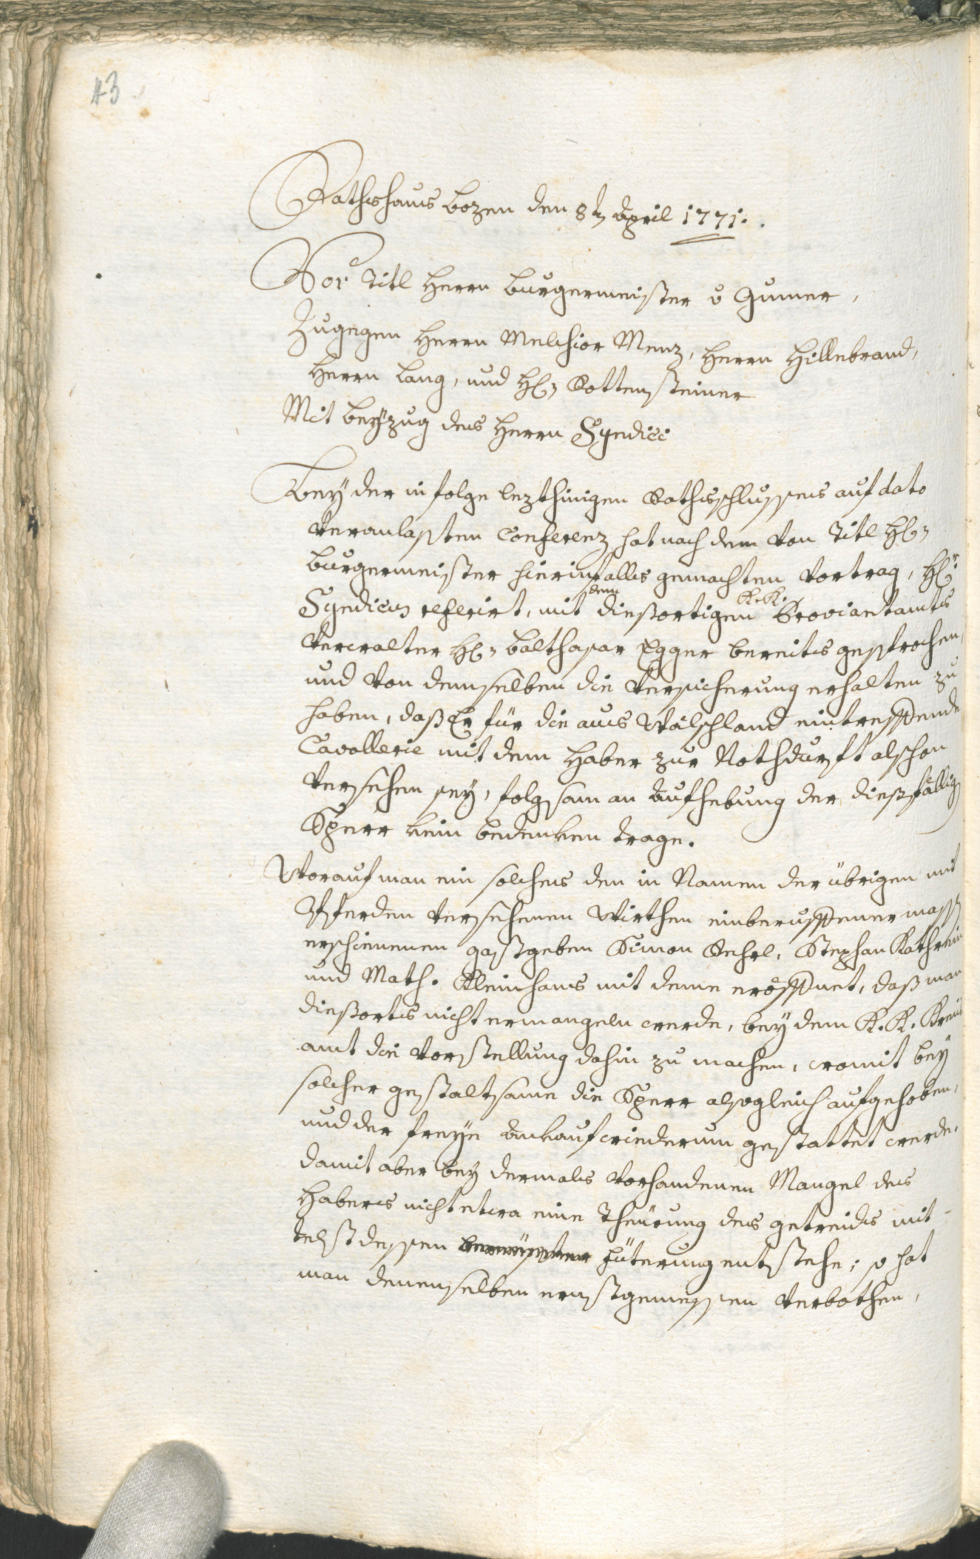 43
Rathshaus Bozen den 8t. April 1771.
Vor Titl Herrn Burgermeister v Gumer,
Zugegen Herrn Melchior Menz, Herrn Hillebrand,
Herrn Lang, und H. Rottensteiner
Mit beyzug des Herrn Syndici
Bey der infolge lezthinigen Rathsschlusses auf dato
veranlassten Conferenz hat nach dem von Titl H.
Burgermeister hierinfalls gemachten Vortrag, Hr
Syndicus referirt, mit dem dießortigen K. K. Proviantamts
Verwalter H. Balthasar Egger bereits gesprochen,
und von demselben die Versicherung erhalten zu
haben, daß Er für die aus Wälschland eintreffende
Cavallerie mit dem Haber zur Nothdurft alschon
versehen sey, folgsam an Aufhebung der dießfällig
Sperr kein bedenken trage.
Worauf man ein solches den in Namen der übrigen mit
Pferden versehenen Wirthen einberuffener massen
erschienenen gastgeben Simon Stephan Kathrein
und Math. Kleinhans mit deme eröffnet, daß man
dießorts nicht ermangeln werde, bey dem K. K. Kreis
amt die Vorstellung dahin zu machen, womit bey
solcher gestaltsame die Sperr alsogleich aufgehoben,
und der freye Ankauf wiederum gestattet werde.
damit aber bey dermals vorhandenen Mangel des
Habers nicht etwa eine Theurung des getreids mit
telst dessen füterung entstehe; so hat
man denenselben ernstgemessen verbothen,